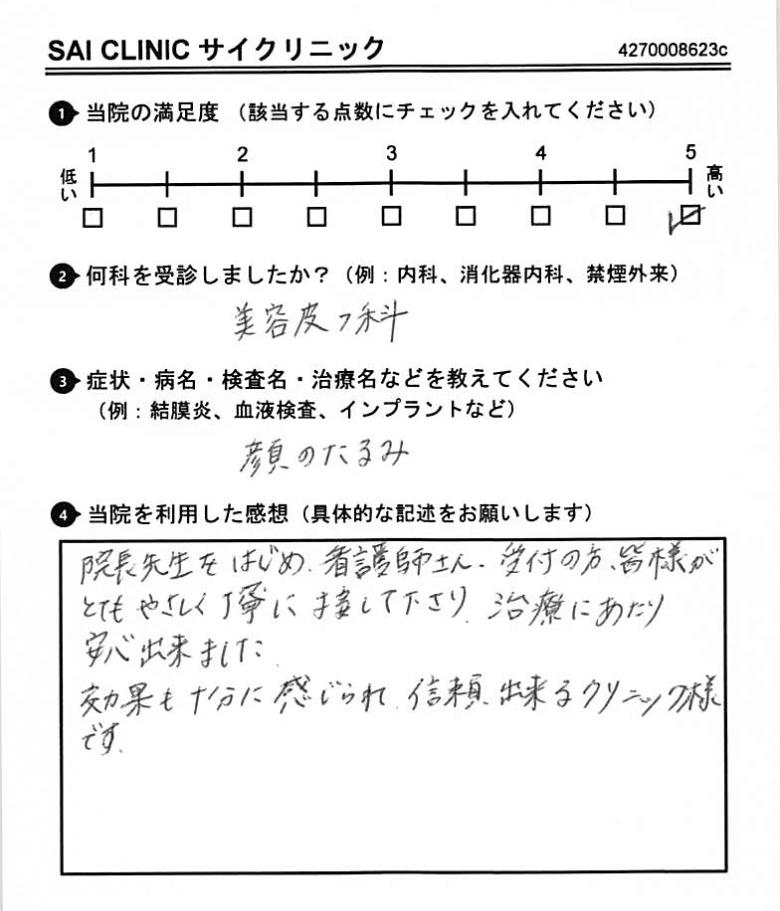 SAI CLINIC サイクリニック 4270008623c
❶ 当院の満足度 （該当する点数にチェックを入れてください）
1 2 3 4 5
低い 高い
❷ 何科を受診しましたか？（例：内科、消化器内科、禁煙外来）
美容皮フ科
❸ 症状・病名・検査名・治療名などを教えてください
（例：結膜炎、血液検査、インプラントなど）
顔のたるみ
❹ 当院を利用した感想（具体的な記述をお願いします）
院長先生をはじめ、看護師さん、受付の方、皆様が
とてもやさしく丁寧に接して下さり、治療にあたり
安心出来ました。
効果も十分に感じられ、信頼出来るクリニック様
です。